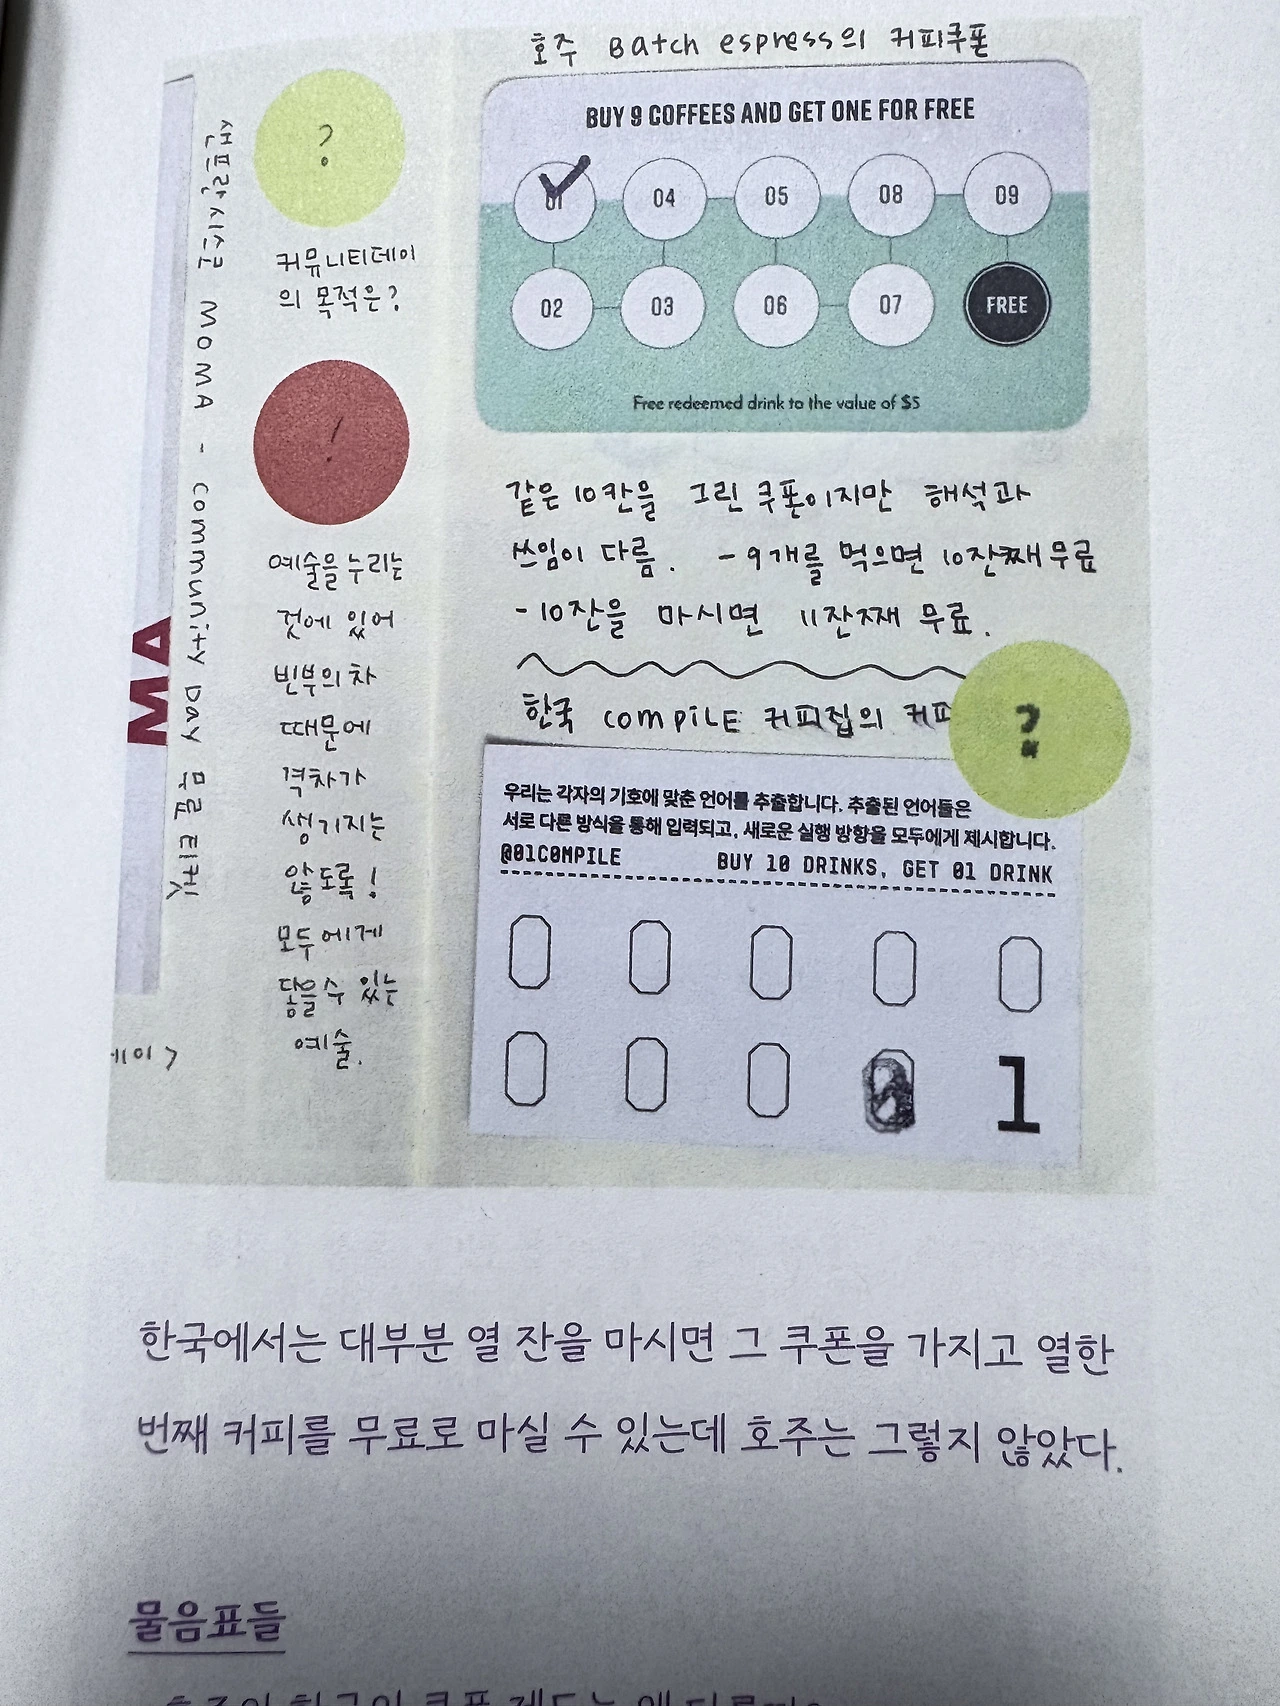 호주 Batch espress의 커피쿠폰
BUY 9 COFFEES AND GET ONE FOR FREE
01 04 05 08 09
02 03 06 07 FREE
Free redeemed drink to the value of $5
샌프란시스코 MOMA - community Day 무료 티켓
MA
?
커뮤니티데이
의 목적은?
!
예술을 누리는
것에 있어
빈부의 차
때문에
격차가
생기지는
않도록!
모두에게
닿을 수 있는
예술.
같은 10칸을 그린 쿠폰이지만 해석과
쓰임이 다름. - 9개를 먹으면 10잔째 무료
- 10잔을 마시면 11잔째 무료.
한국 compiLE 커피집의 커피
?
우리는 각자의 기호에 맞춘 언어를 추출합니다. 추출된 언어들은
서로 다른 방식을 통해 입력되고, 새로운 실행 방향을 모두에게 제시합니다.
@01C0MPILE BUY 10 DRINKS, GET 01 DRINK
0 0 0 0 0
0 0 0 0 1
한국에서는 대부분 열 잔을 마시면 그 쿠폰을 가지고 열한
번째 커피를 무료로 마실 수 있는데 호주는 그렇지 않았다.
물음표들